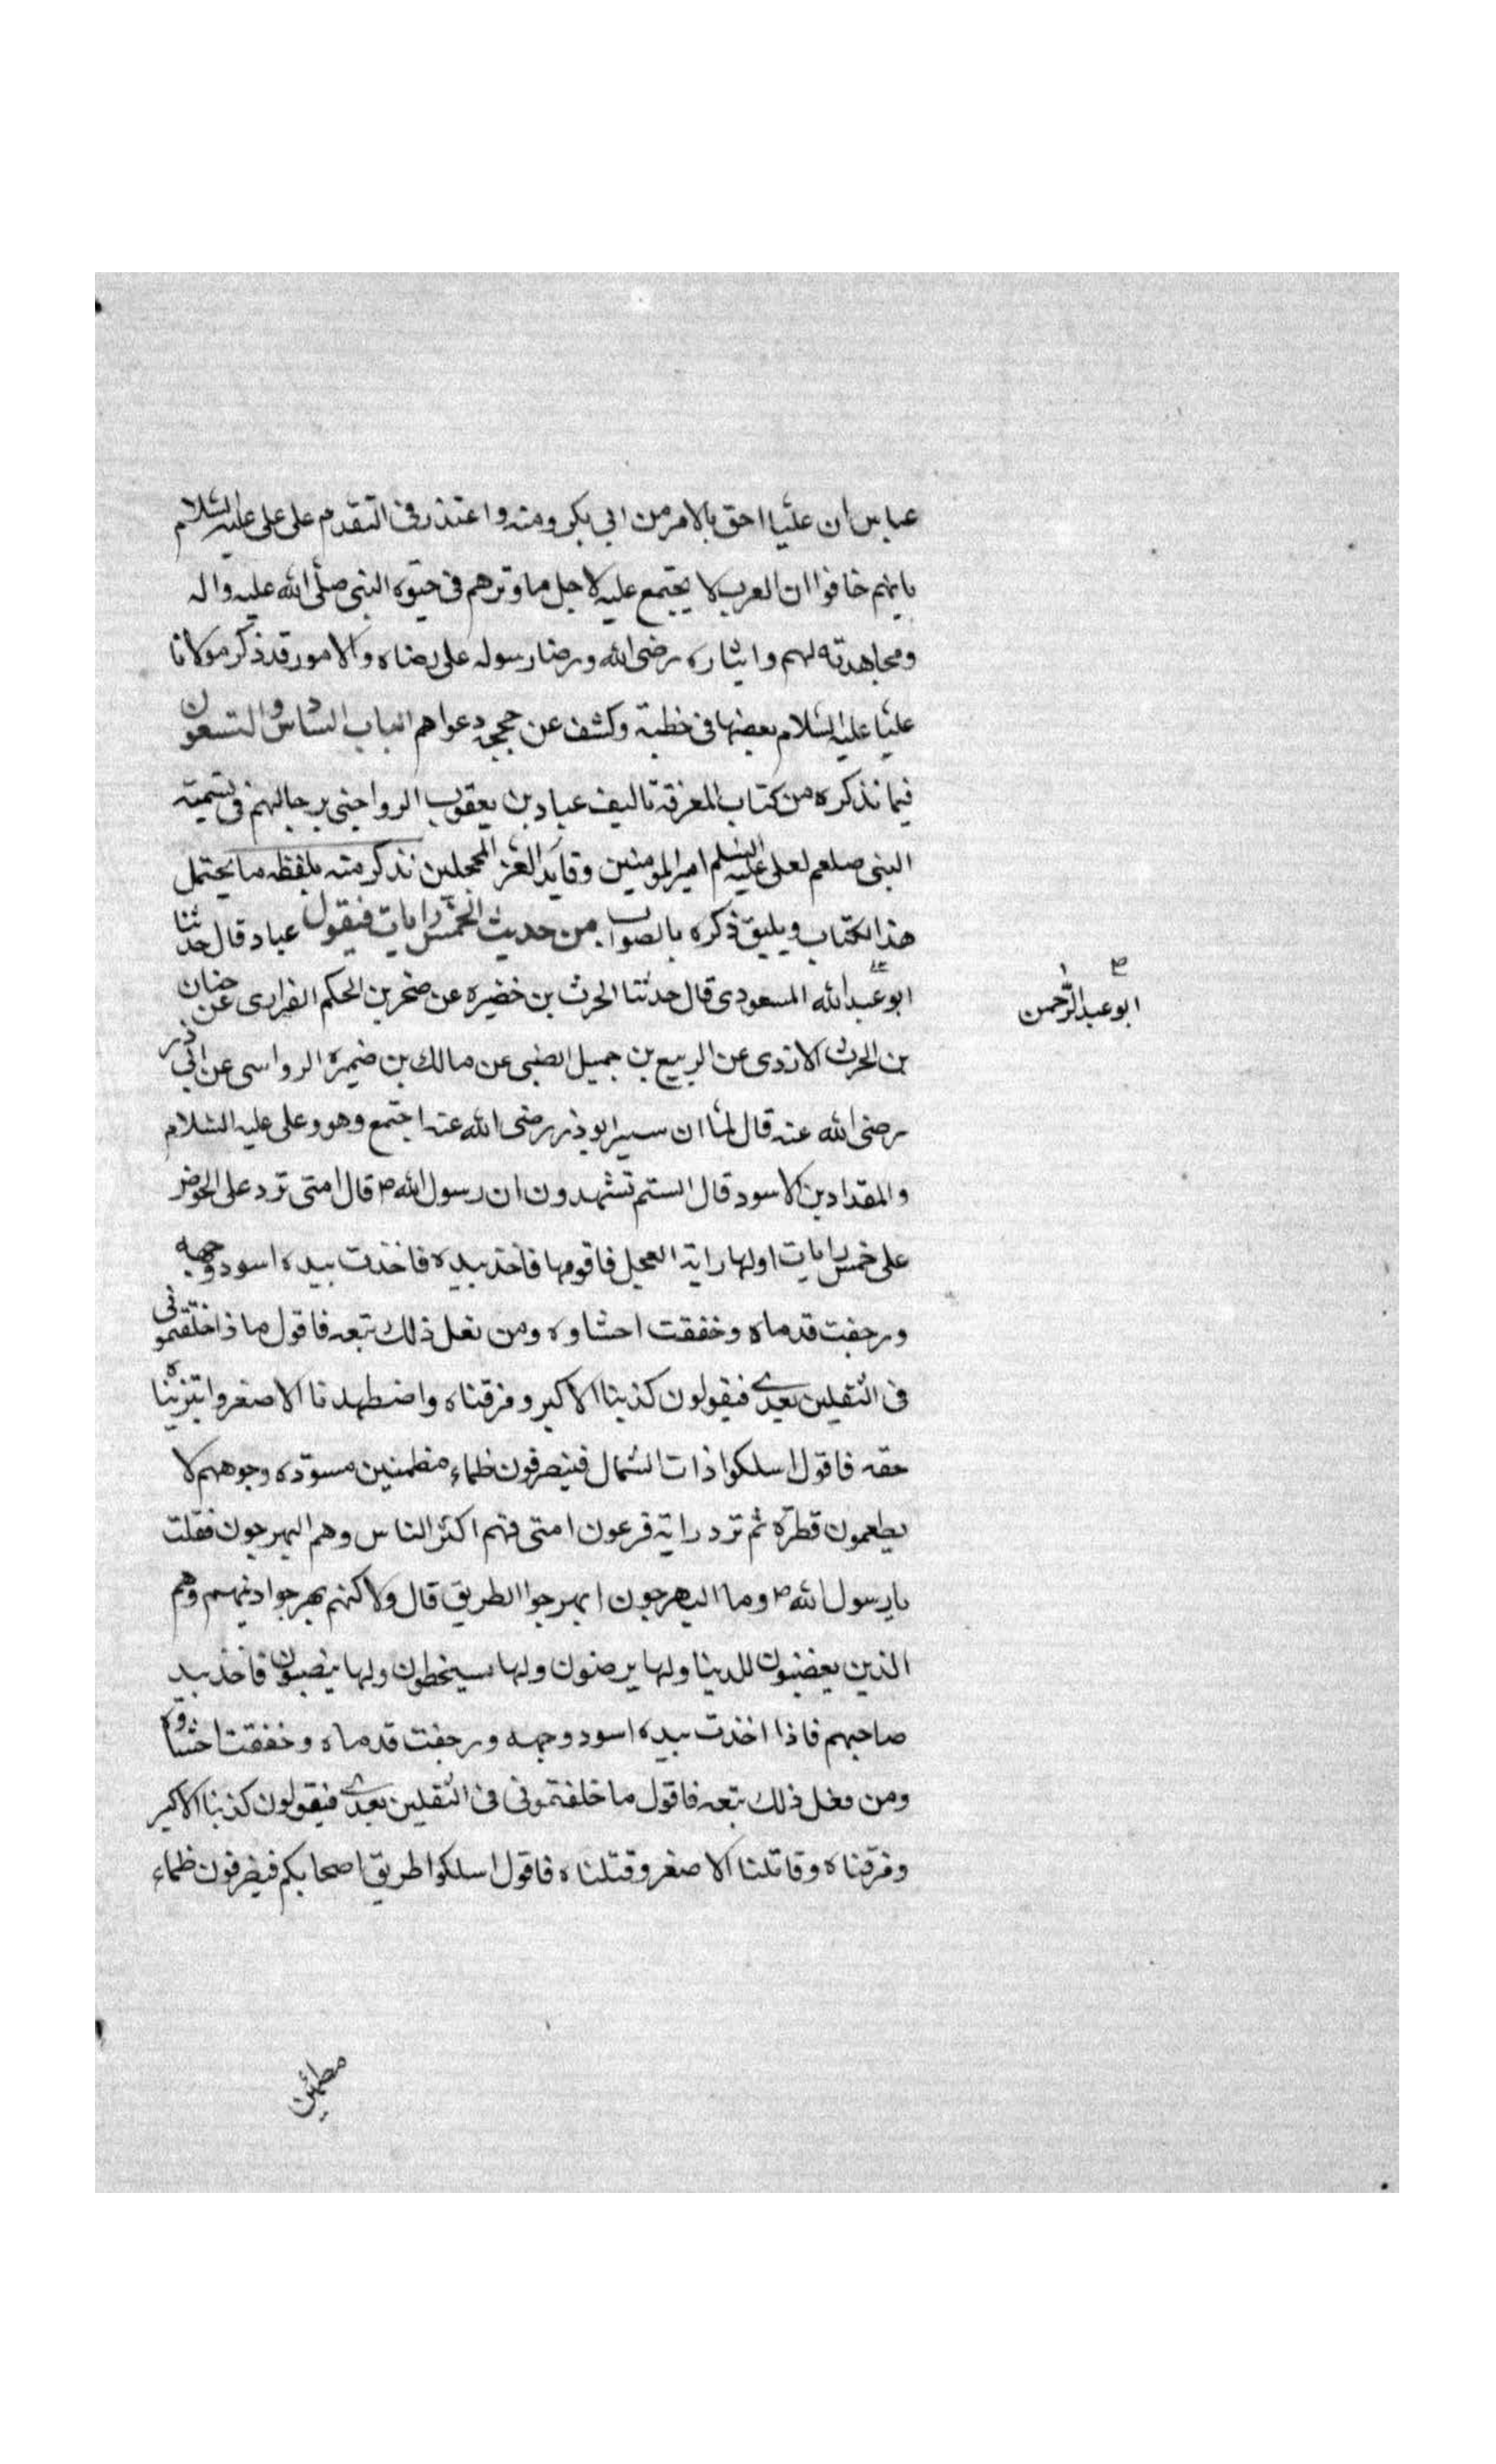 عباس ان عليا احق بالامر من ابي بكر ومنه واعتذر في التقدم على علي عليه السلام
بانهم خافوا ان العرب لا يجتمع عليه لاجل ما وترهم في حيوه النبي صلى الله عليه واله
ومجاهدته لهم وايثاره رضى الله ورضا رسوله على رضاه والامور قد ذكر مولانا
عليا عليه السلام بعضها في خطبة وكشف عن حجج دعواهم الباب السادس والتسعون
فيما نذكره من كتاب المعرفة تاليف عباد بن يعقوب الرواجني برجالهم في تسمية
النبي صلعم لعلي عليه السلم امير المومنين وقايد الغر المحجلين نذكر منه بلفظه ما يحتمل
هذا الكتاب ويليق ذكره بالصواب من حديث الخمس رايات فيقول عباد قال حدثنا
ابو عبد الله المسعودي قال حدثنا الحرث بن خضيره عن صخر بن الحكم الفزارى عن حنان
بن الحرث الازدى عن الربيع بن جميل الضبي عن مالك بن ضميرة الرواسى عن ابي ذر
رضى الله عنه قال لما ان سير ابوذر رضى الله عنه اجتمع وهو وعلى عليه السلام
والمقداد بن الاسود قال الستم تشهدون ان رسول الله ص قال امتى ترد على الحوض
على خمس رايات اولها راية العجل فاقومها فاخذ بيده فاخذت بيده اسود وجهه
ورجفت قدماه وخفقت احشاوه ومن فعل ذلك تبعه فاقول ماذا خلفتموني
فى الثقلين بعدي فيقولون كذبنا الاكبر ومزقناه واضطهدنا الاصغر وابتزيناه
حقه فاقول اسلكوا ذات الشمال فينصرفون ظماء مظمئين مسودة وجوههم لا
يطعمون قطرة ثم ترد راية فرعون امتى فهم اكثر الناس وهم البهرجون فقلت
يا رسول الله ص وما البهرجون ابهرجوا الطريق قال ولاكنهم بهرجوا دينهم وهم
الذين يغضبون للدينا ولها يرضون ولها سيخطون ولها ينصبون فاخذ بيد
صاحبهم فاذا اخذت بيده اسود وجهه ورجفت قدماه وخفقت احشاوه
ومن فعل ذلك تبعه فاقول ما خلفتموني في الثقلين بعدي فيقولون كذبنا الاكبر
ومزقناه وقاتلنا الاصغر وقتلناه فاقول اسلكوا طريق اصحابكم فينصرفون ظماء
ابو عبد الرحمن
مظمئين